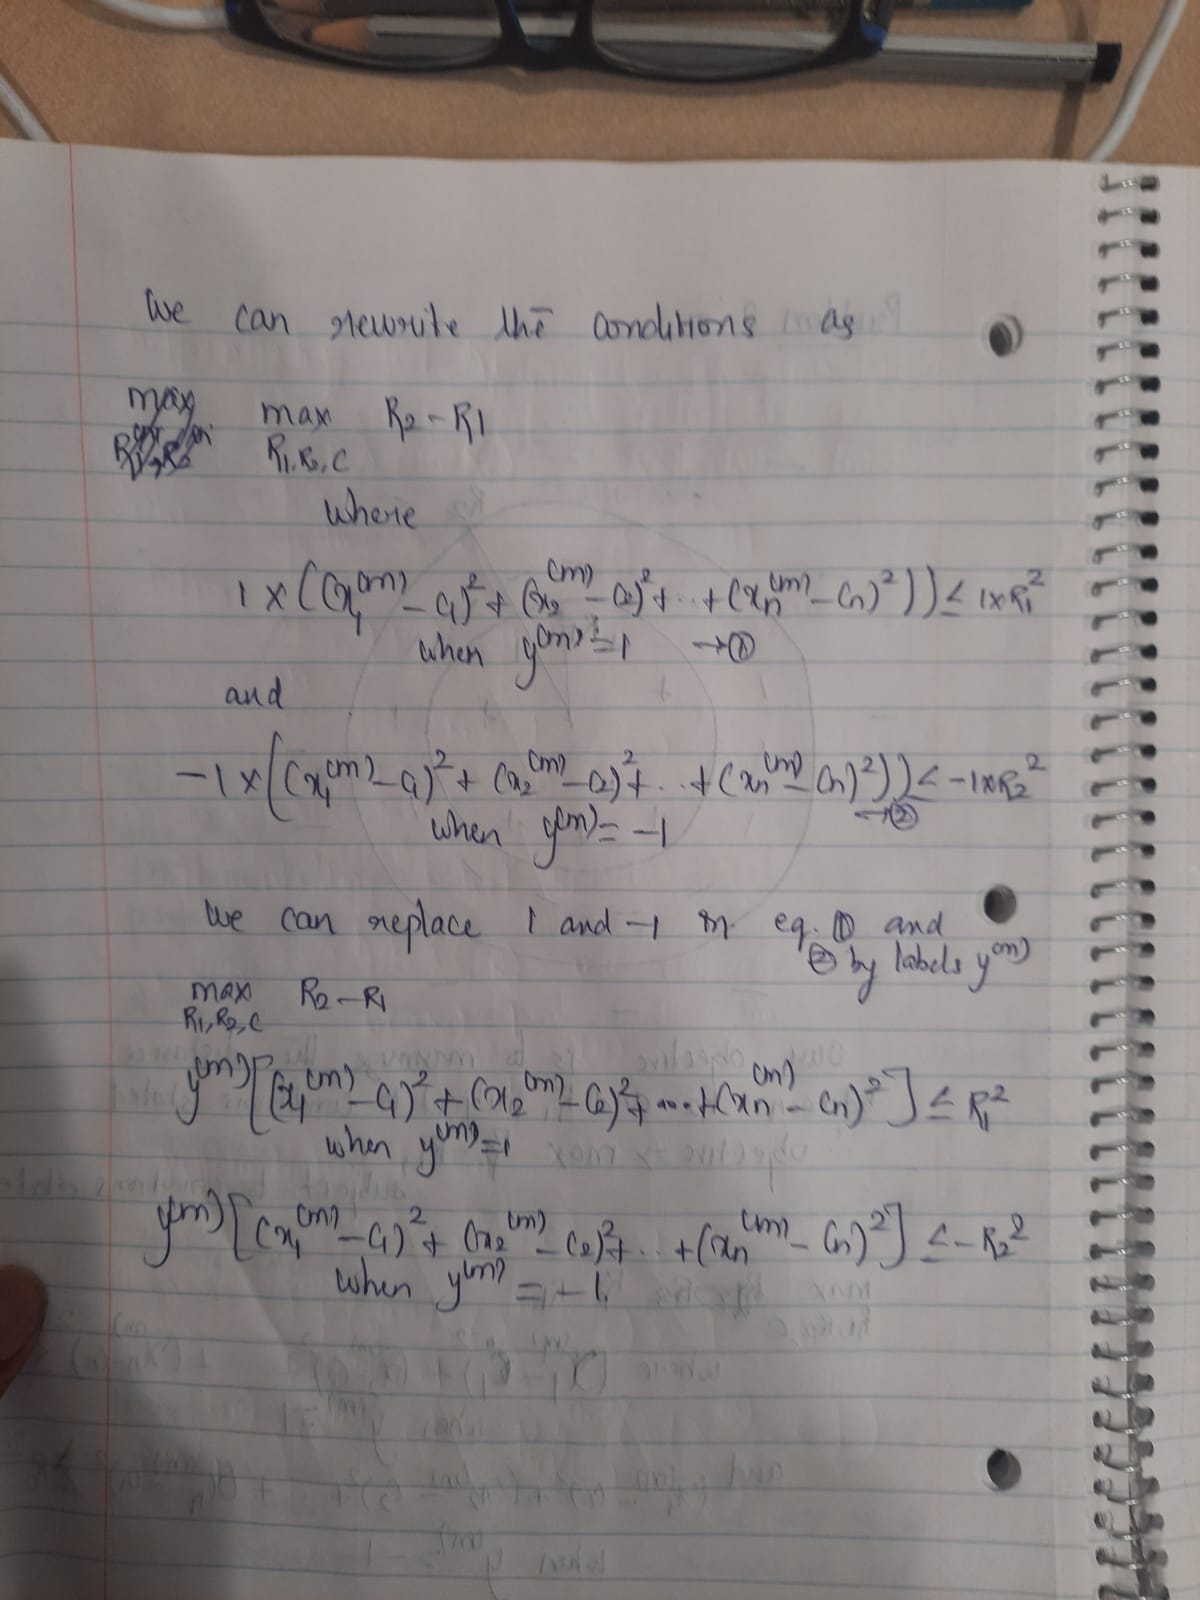 We can rewrite the conditions as
max R2 - R1
R1, R2, C
where
1 x ((x1^(m) - c1)^2 + (x2^(m) - c2)^2 + .. + (xn^(m) - cn)^2)) ≤ 1xR1^2
when y^(m) = 1 → ①
and
-1 x ((x1^(m) - c1)^2 + (x2^(m) - c2)^2 + .. + (xn^(m) - cn)^2)) ≤ -1xR2^2
→ ②
when y^(m) = -1
We can replace 1 and -1 in eq. ① and
② by labels y^(m)
max R2 - R1
R1, R2, C
y^(m) [(x1^(m) - c1)^2 + (x2^(m) - c2)^2 + .... + (xn^(m) - cn)^2] ≤ R1^2
when y^(m) = 1
y^(m) [(x1^(m) - c1)^2 + (x2^(m) - c2)^2 + .. + (xn^(m) - cn)^2] ≤ - R2^2
when y^(m) = -1